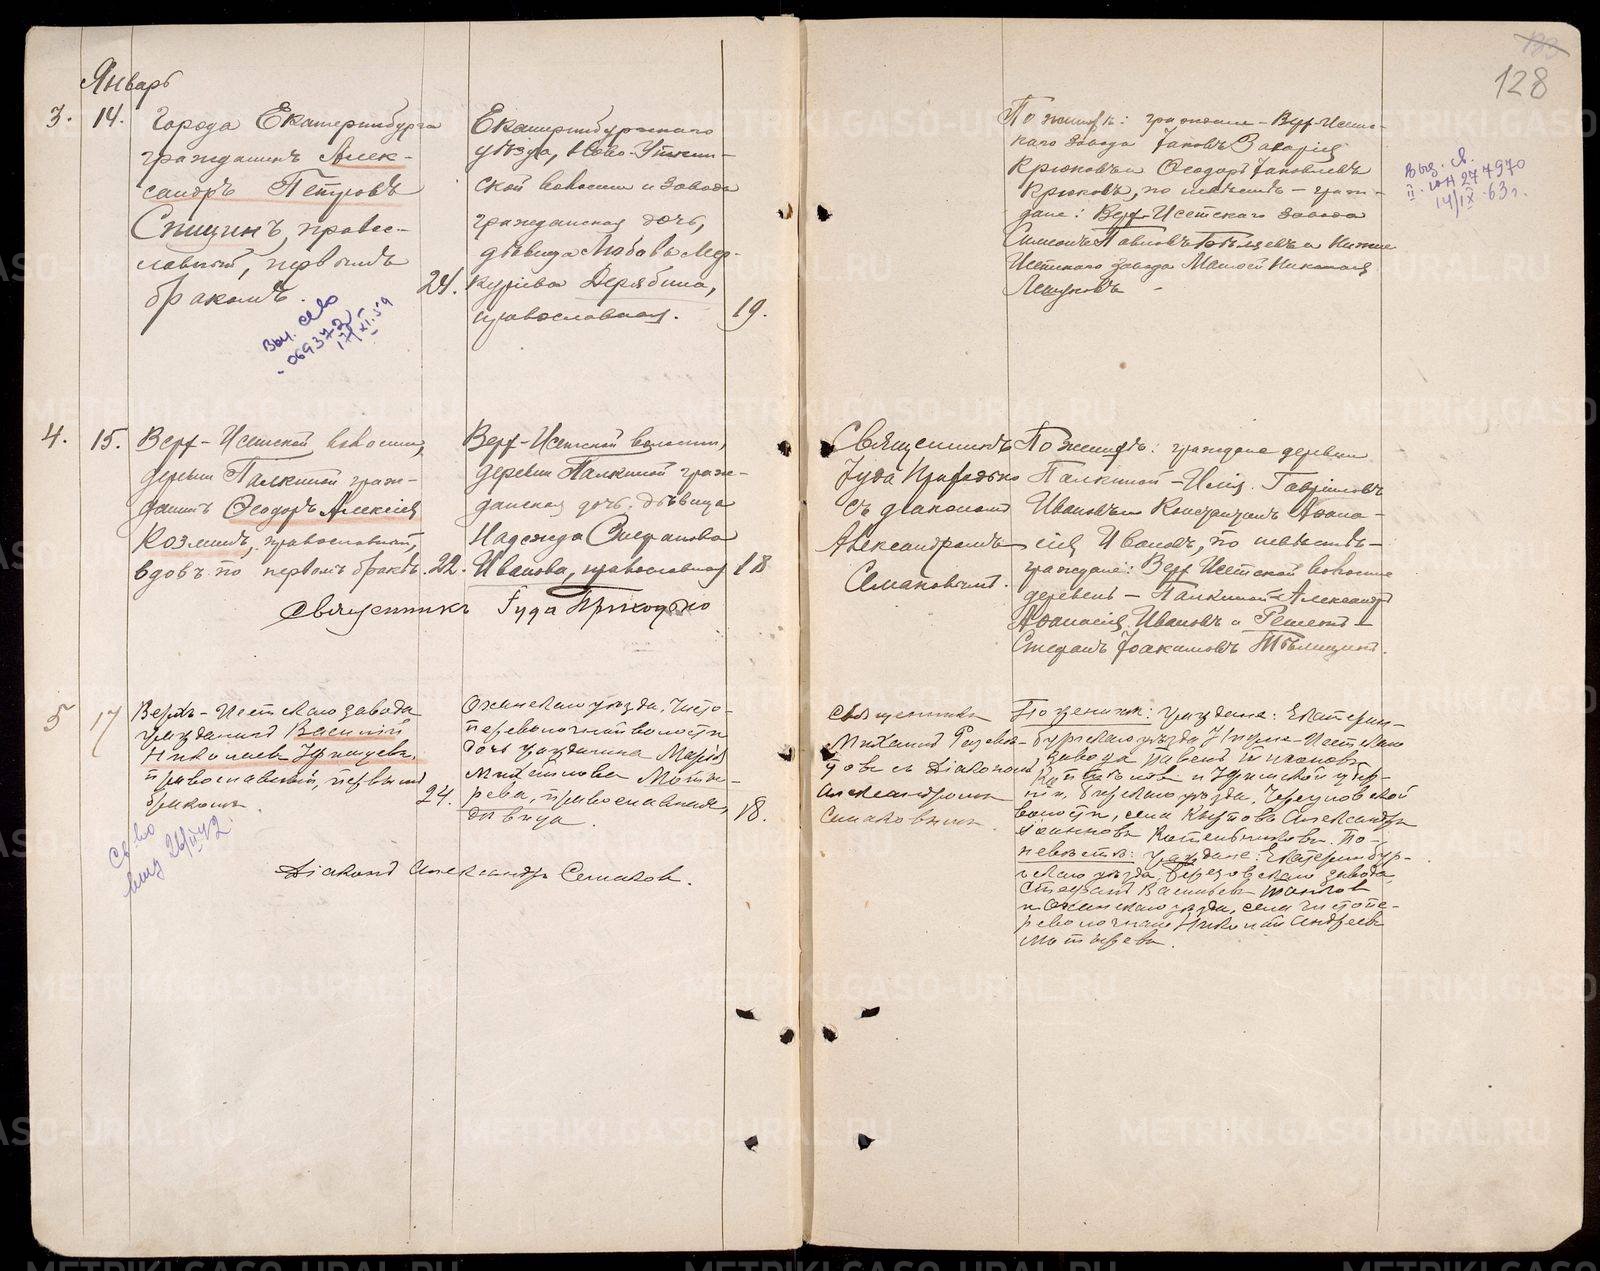 Январь
128
3. 14. Города Екатеринбурга
гражданинъ Алек-
сандръ Петровъ
Спицинъ, правос-
лавный, первымъ
бракомъ.
24.
Выд. св-во
069372
17/XI.59
Екатеринбургскаго
уѣзда, Ново-Уткин-
ской волости и завода
гражданская дочь,
дѣвица Любовь Мер-
курiева Дерябина,
православная.
19.
По женихѣ: граждане - Верх-Исетс-
каго завода Iаковъ
Крюковъ и Ѳеодоръ Iаковлевъ
Крюковъ, по невѣстѣ - граж-
дане: Верх-Исетскаго завода
Симеонъ Павловъ и Нижне
Исетскаго завода
Выд. св.
II-ЮН 274970
14/IX-63г.
4. 15. Верх-Исетской волости,
деревни Палкиной граж-
данинъ Ѳеодоръ Алексiевъ
Козминъ, православный,
вдовъ по первомъ бракѣ. 22.
Верх-Исетской волости,
деревни Палкиной граж-
данская дочь, дѣвица
Надежда Стефанова
Иванова, православная 18
Священникъ Iуда Приходько
Священникъ
Iуда Приходько
съ дiакономъ
Александромъ
Семаковымъ.
По женихѣ: граждане деревни
Палкиной - Илiя Гаврiиловъ
Ивановъ и Константинъ Аѳана-
сiевъ Ивановъ, по невѣстѣ -
граждане: Верх Исетской волости
деревень - Палкиной Александръ
Аѳанасiевъ Ивановъ и Решетъ -
Стефанъ Iоакимовъ
5 17 Верхъ-Исетскаго завода
гражданинъ Василiй
Николаевъ
православный, первымъ
бракомъ.
24.
Св-во
выд 26/II 42
Оханскаго уѣзда, Чисто-
переволочной волости
дочь гражданина Марiя
Михайлова Моты-
рева, православная,
дѣвица.
18.
Дiаконъ Александръ Семаковъ.
Священникъ
Михаилъ
съ Дiакономъ
Александромъ
Семаковымъ.
По женихѣ: граждане: Екатерин-
бургскаго уѣзда Нижне-Исетскаго
завода Павелъ Тихоновъ
и Уфимской губер-
нiи, Бирскаго уѣзда,
волости, села Александръ
Iоанновъ Котельниковъ. По
невѣстѣ: граждане: Екатеринбур-
гскаго уѣзда, Березовскаго завода,
Стефанъ Васильевъ
и Оханскаго уѣзда, села Чистопе-
револочнаго Николай Андреевъ
Мотыревъ.